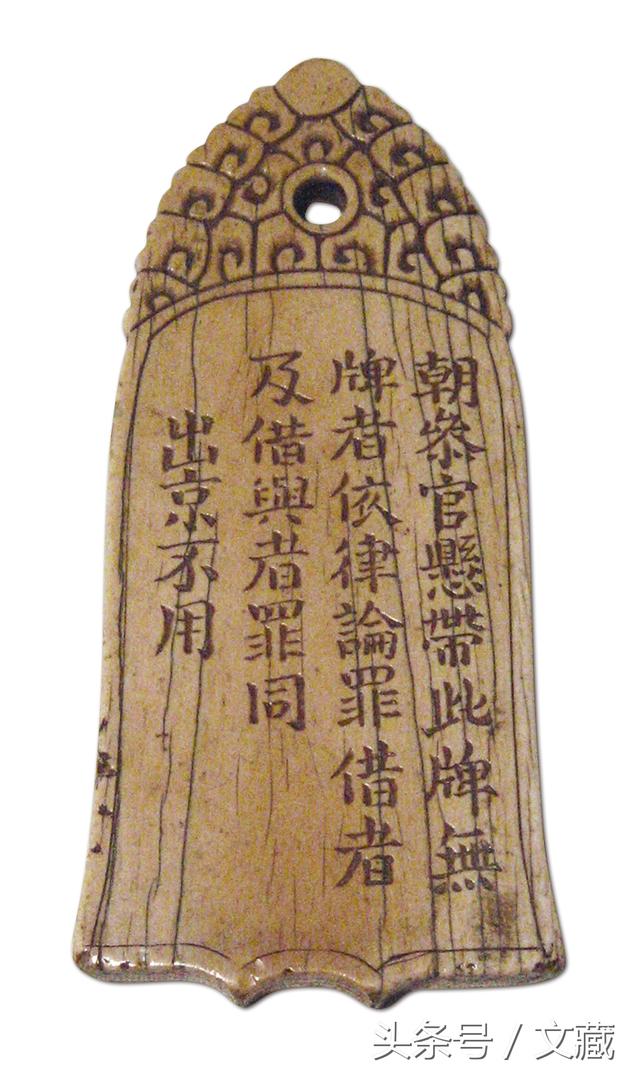 朝叅官懸帶此牌無
牌者依律論罪借者
及借與者罪同
出京不用
头条号 / 文藏